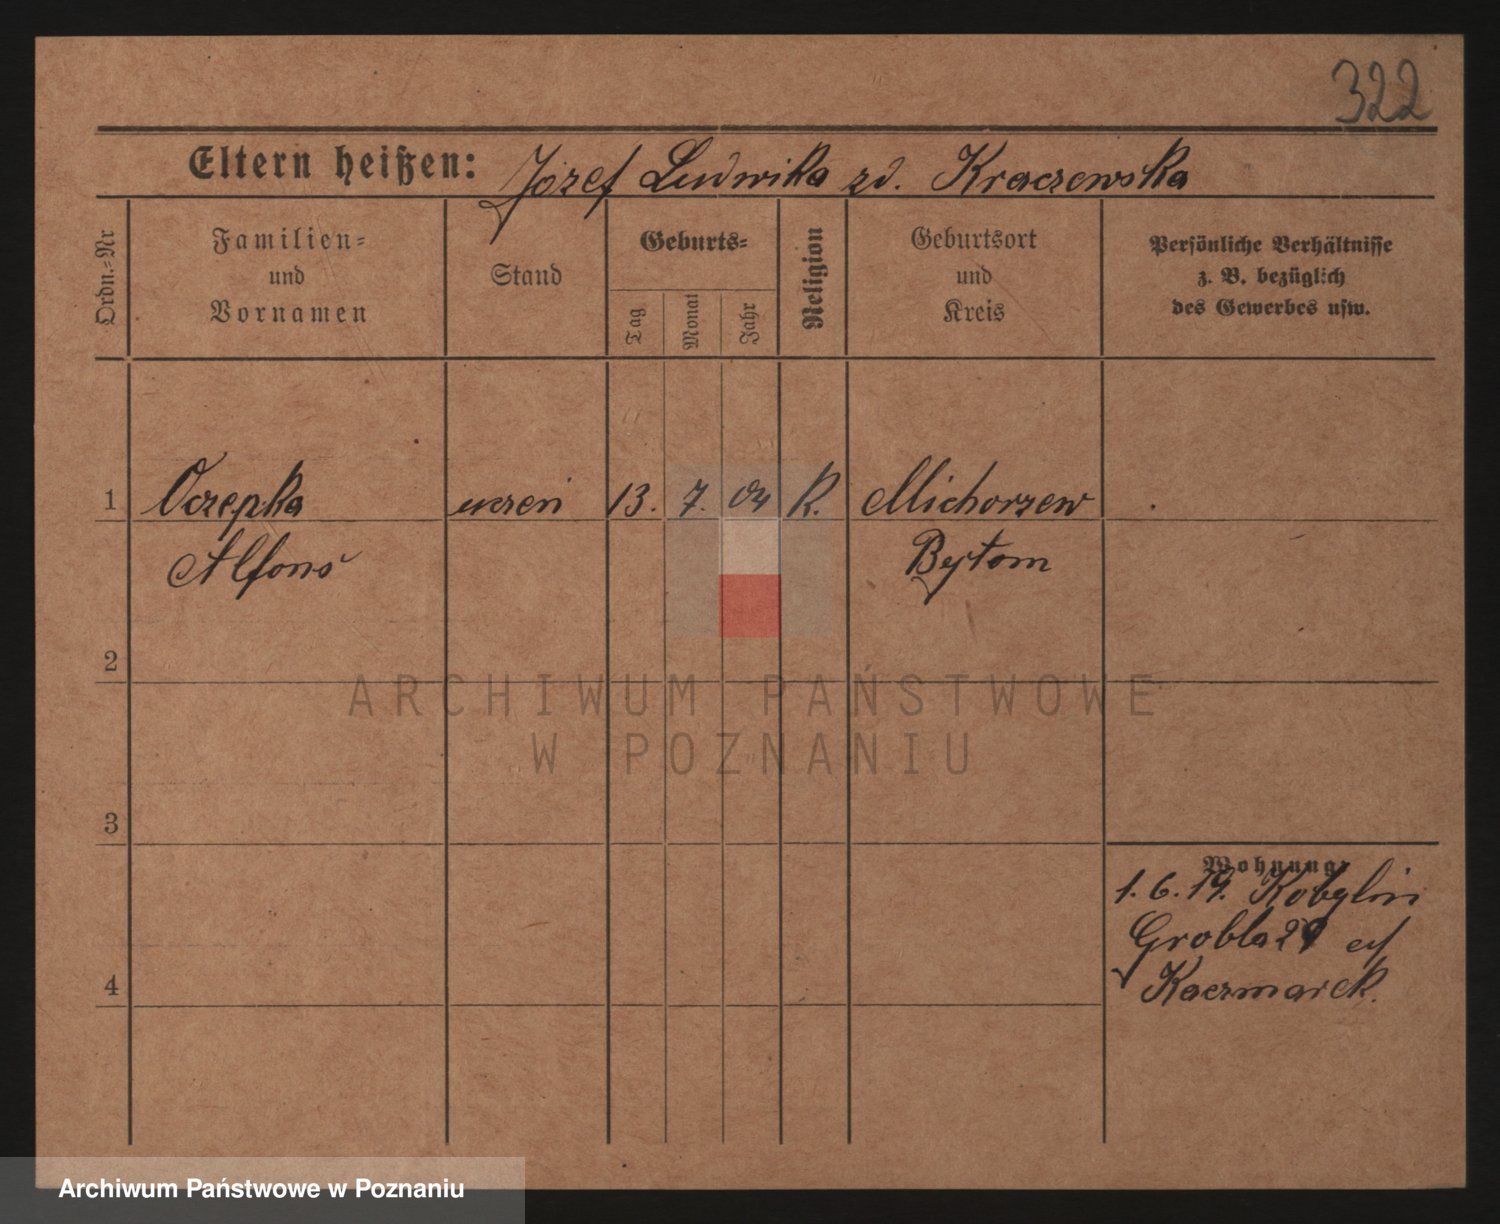 322
Eltern heißen: Józef Ludwika zd. Kraczewska
Ordn.-Nr
Familien- und Vornamen
Stand
Geburts-
Tag
Monat
Jahr
Religion
Geburtsort und Kreis
Persönliche Verhältnisse
z. B. bezüglich
des Gewerbes usw.
1 Oczepka uczeń 13. 7. 04 K. Michorzew
Alfons Bytom
2
ARCHIWUM PAŃSTWOWE
W POZNANIU
3
Wohnung:
1. 6. 19. Kobylin
Grobla
4
Kaczmarek.
Archiwum Państwowe w Poznaniu